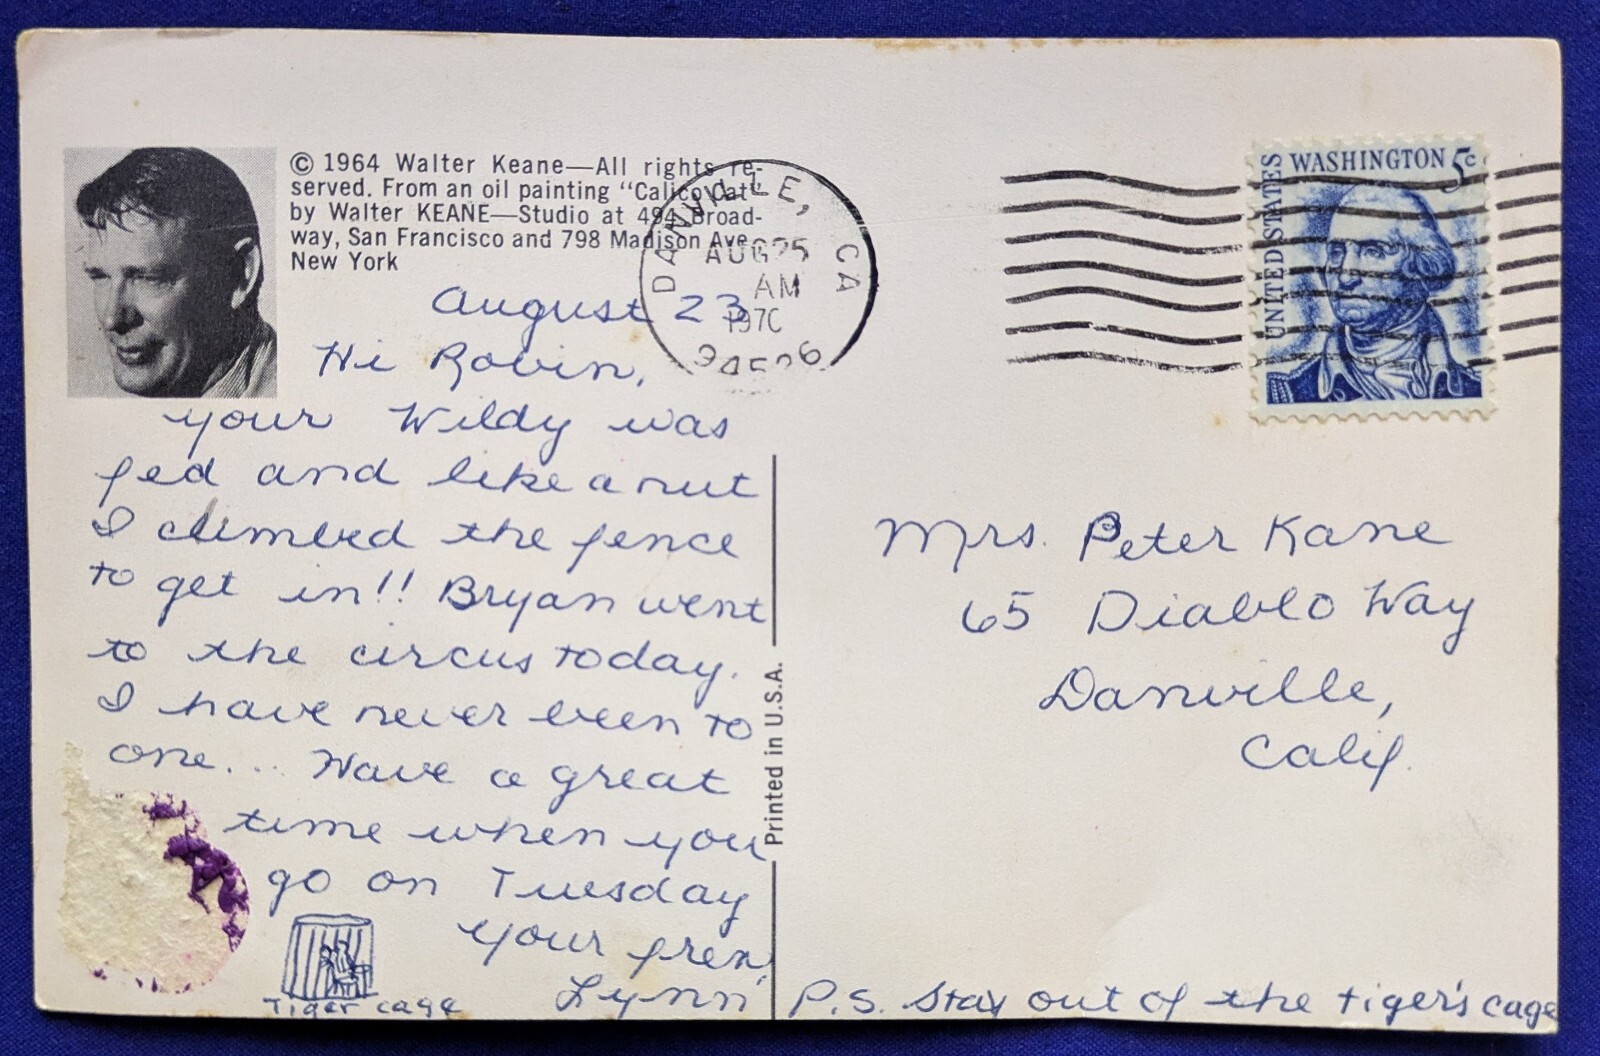 © 1964 Walter Keane—All rights re-
served. From an oil painting “Calico Cat”
by Walter KEANE—Studio at 494 Broad-
way, San Francisco and 798 Madison Ave.
New York
DANVILLE, CA
AUG 25
AM
1970
94526
UNITED STATES
WASHINGTON 5c
August 23
Hi Robin,
your Wildy was
fed and like a nut
I climbed the fence
to get in!! Bryan went
to the circus today.
I have never been to
one... Have a great
time when you
go on Tuesday
your fren,
Lynn
Tiger cage
Printed in U.S.A.
Mrs. Peter Kane
65 Diablo Way
Danville,
Calif.
P.S. Stay out of the tiger's cage